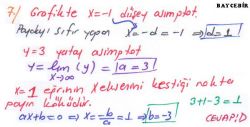 BAYCEBİR
7) Grafikte x=-1 düşey asimptot
Paydayı sıfır yapan x=-d=-1 ⇒ d=1
y=3 yatay asimptot
y=lim (y) = a=3
x→∞
x=1 eğrinin x eksenini kestiği nokta
payın köküdür.
ax+b=0 ⇒ x=-b/a=1 ⇒ b=-3
3+1-3=1
CEVAP: